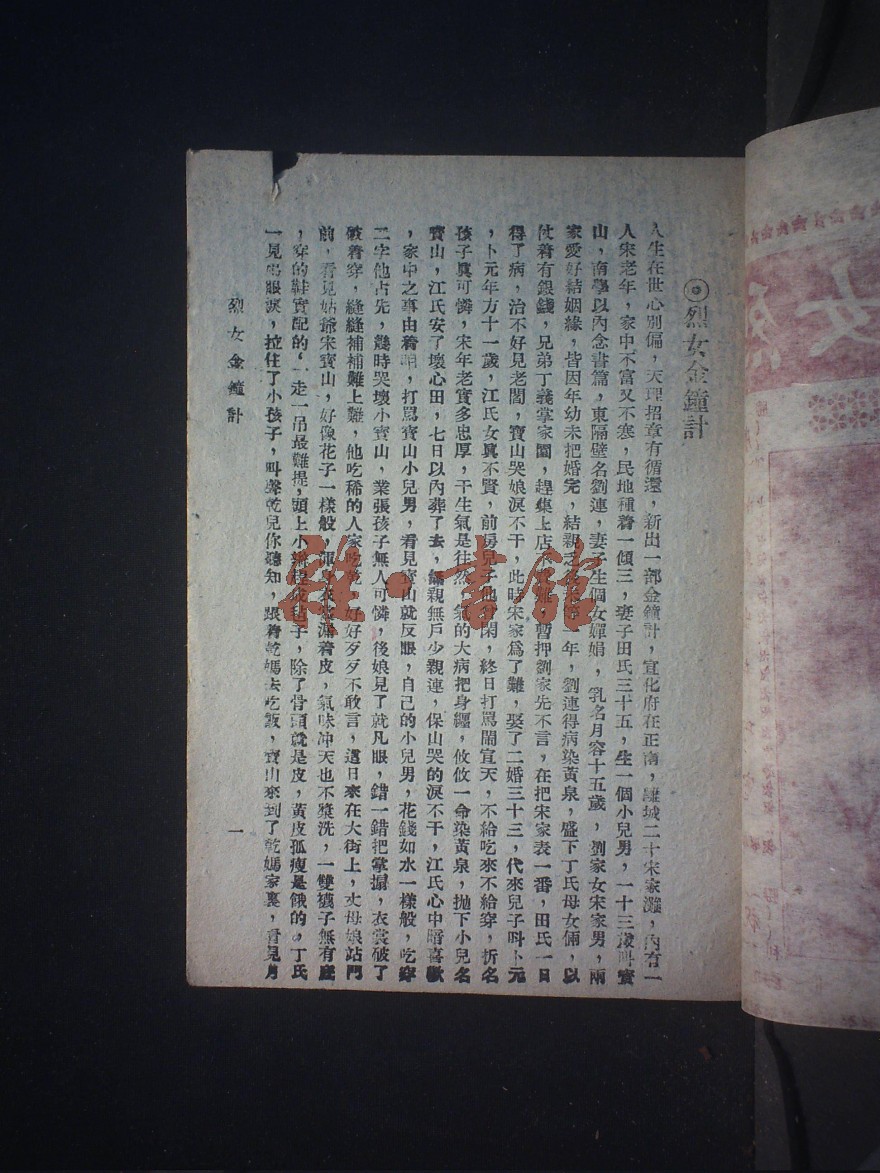 烈女金鐘計
人生在世心別偏，天理招章有循還，新出一部金鐘計，宣化府在正南，離城二十宋家灘，內有一
人宋老年，家中不富又不寒，民地種着一傾三，妻子田氏三十五，生一個小兒男，一十三歲叫寶
山，南學以內念書篇，東隔壁名劉連，妻子生個女嬋娟，乳名月容十五歲，劉家女宋家男，兩
家愛好結姻緣，皆因年幼未把婚完，結親乏年，劉連得病染黃泉，盛下丁氏母女倆，以
仗着有銀錢，兄弟丁義掌家園，趕集上店不暫押劉家先不言，在把宋家表一番，田氏一日
得了病，治不好見老閻，寶山哭娘淚不干，此時宋家爲了難，娶了二婚三十三，代來兒子叫卜元
，卜元年方十一歲，江氏女眞不賢，前房兒子他閑，終日打罵鬧宣天，不給吃來不給穿，折名
孩子眞可憐，宋年老實多忠厚，干生氣是往然，氣的大病把身纏，攸攸一命染黃泉，拋下小兒名
寶山，江氏安了壞心田，七日以內葬了去，無親無戶少親連，保山哭的淚不干，江氏心中暗喜歡
，家中之事由着咱，打罵寶山小兒男，看見寶山就反眼，自己的小兒男，花錢如水一樣般，吃穿
二字他占先，幾時哭壞小寶山，業張孩子無人可憐，後娘見了就凡眼，錯一錯把掌搧，衣裳破了
破着穿，縫縫補補難上難，他吃稀的人家吃乾，好好歹歹不敢言，這日來在大街上，丈母娘站門
前，看見姑爺宋寶山，好像花子一樣般，渾身衣裳漏着皮，氣味冲天也不漿洗，一雙襪子無有底
，穿的鞋實配的，一走一吊最難提，頭上小辮成毡子，除了骨頭就是皮，黃皮孤瘦是餓的。丁氏
一見眼淚，拉住了小孩子，叫聲乾兒你聽知，跟着乾媽去吃飯，寶山來到了乾媽家裏，看見月
烈女金鐘計
一
雜·書館
女